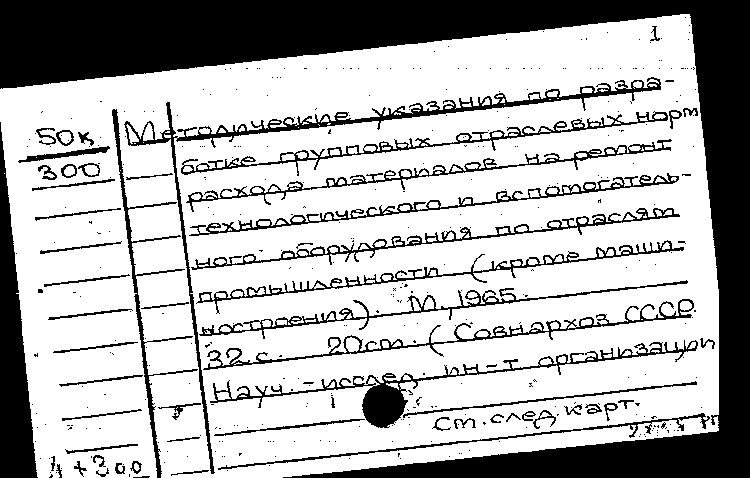 1
50к
300
Методические указания по разра-
ботке групповых отраслевых норм
расхода материалов на ремонт
технологического и вспомогатель-
ного оборудования по отраслям
промышленности (кроме маши-
ностроения). М., 1965.
32с. 20см. (Совнархоз СССР.
Науч.-исслед. ин-т организации
См. след. карт.
4+300